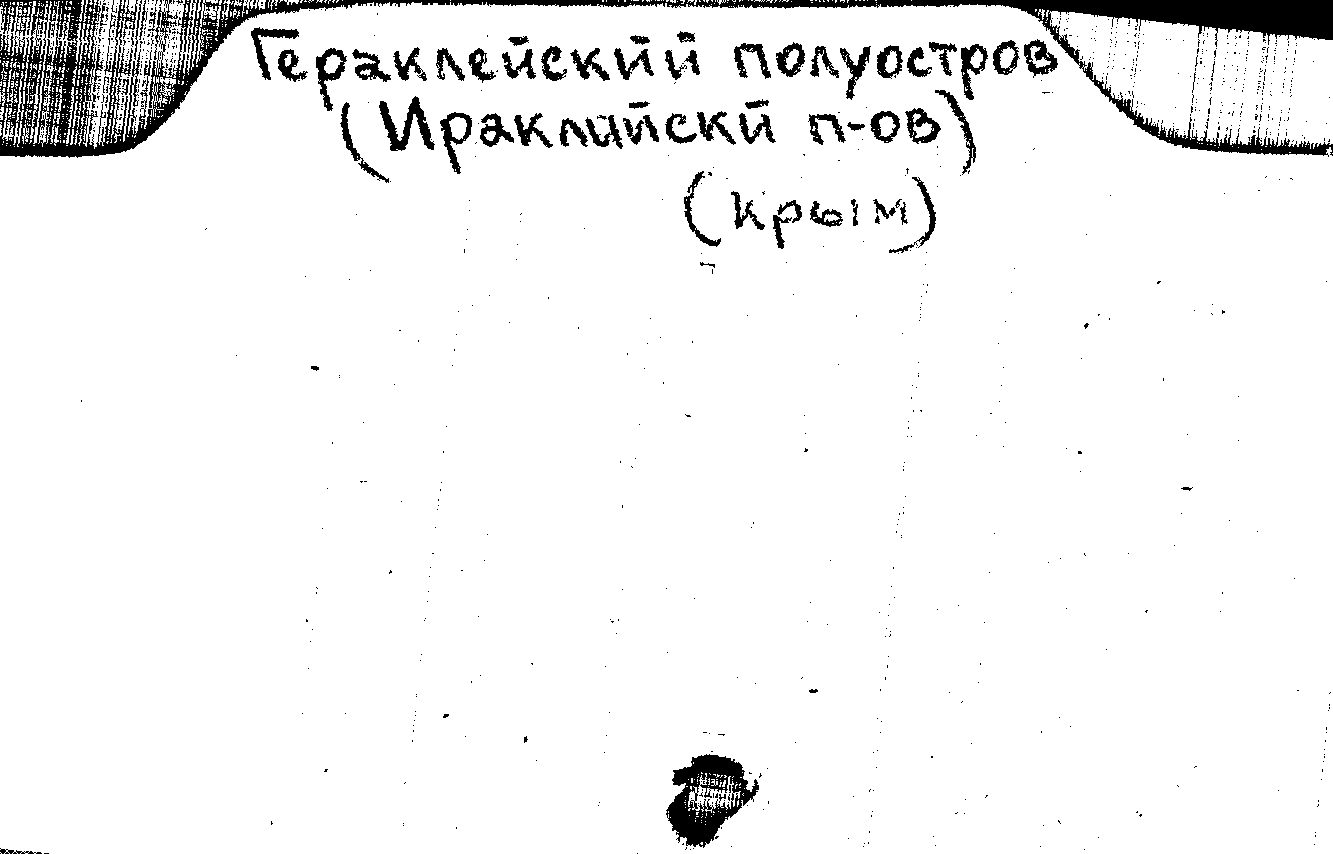 Гераклейский полуостров
(Ираклийскй п-ов)
(Крым)